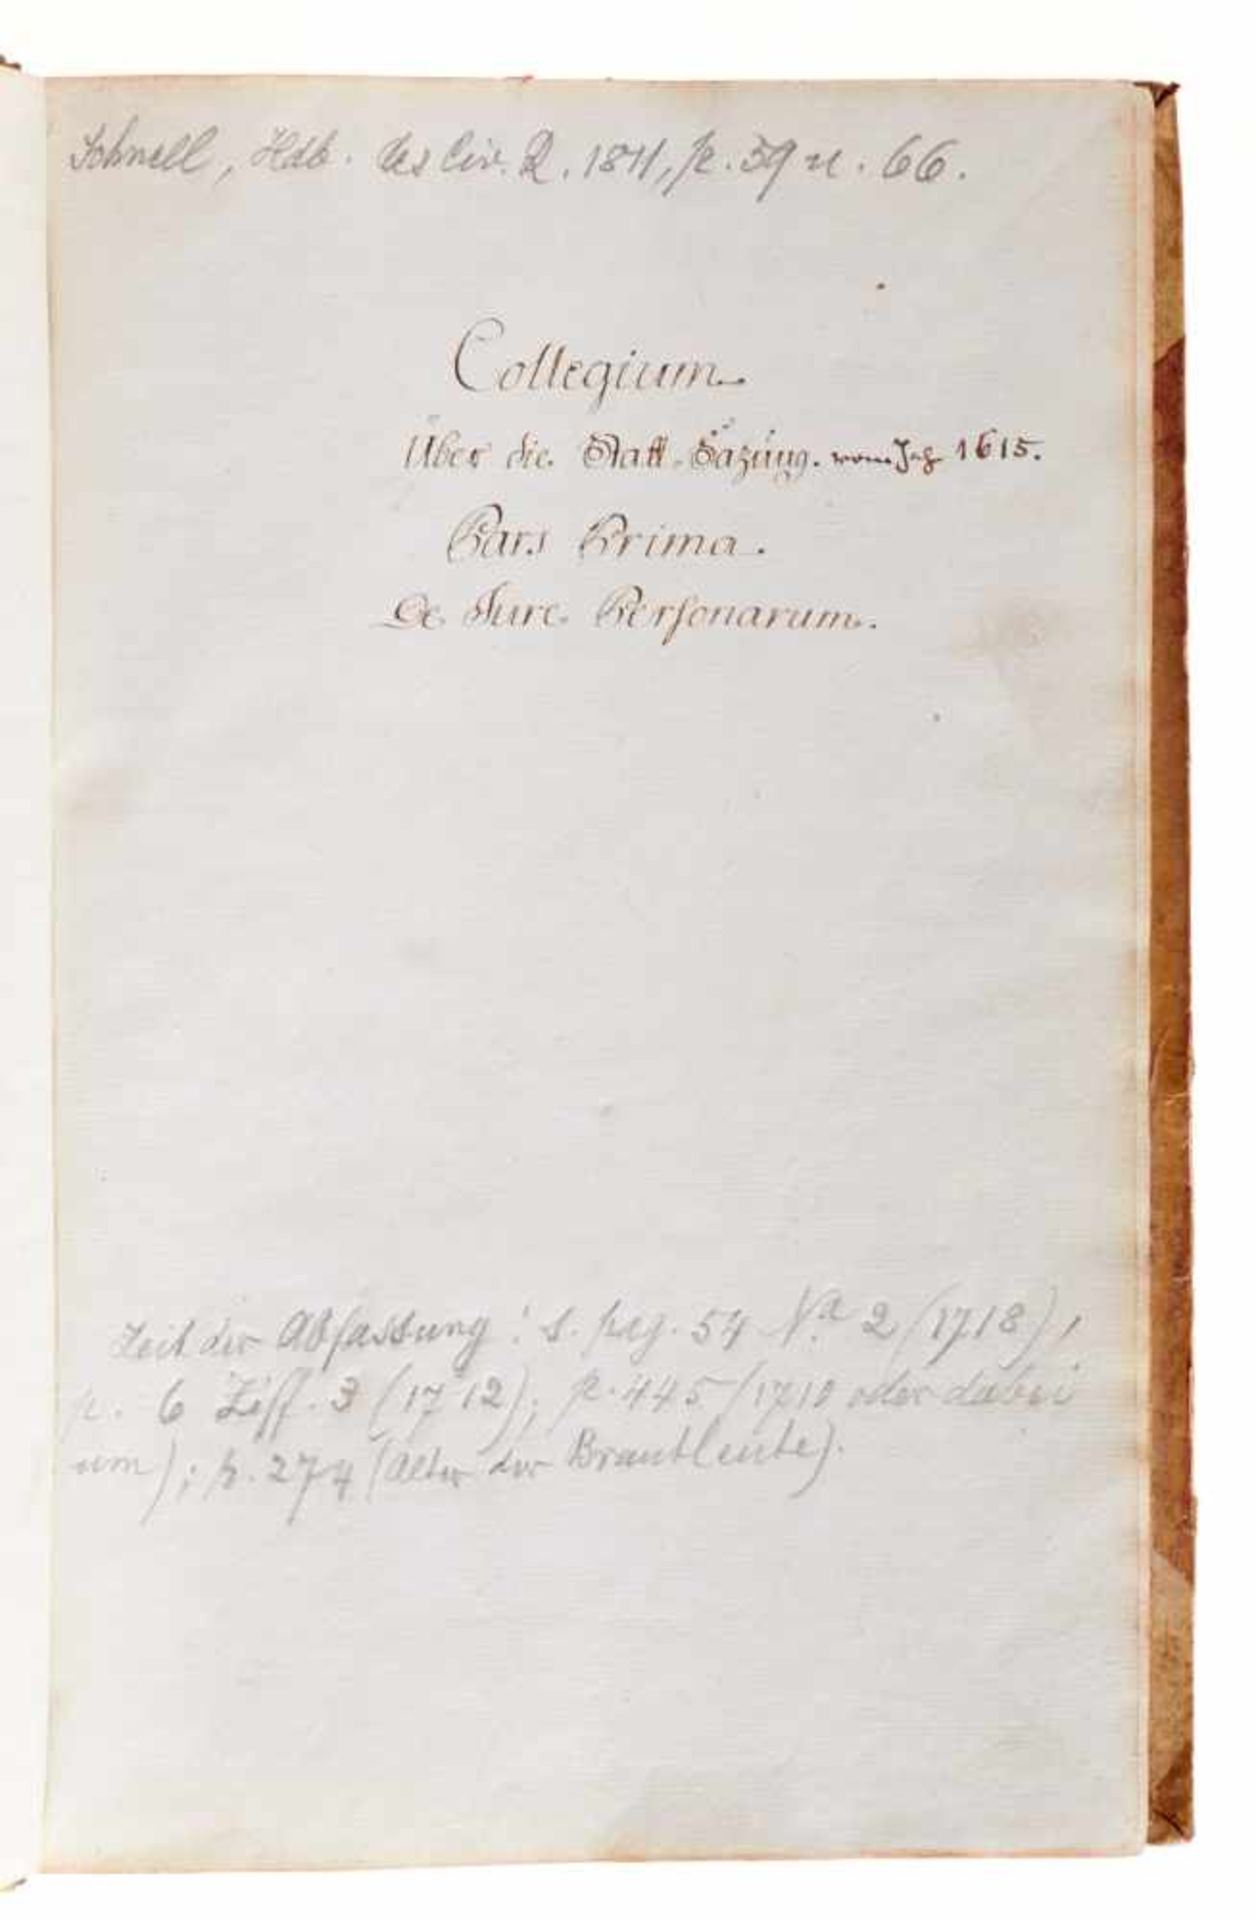 Schnell, Hdb. des Civ. R. 1811, p. 59 u. 66.
Collegium
Über die Statt-Sazung. vom Jah 1615.
Pars Prima.
De Jure Personarum.
Zeit der Abfassung: s. pag. 54 Na 2 (1718),
p. 6 Ziff. 3 (1712); p. 445 (1710 oder dabei
um); p. 274 (Alter der Brautleute).